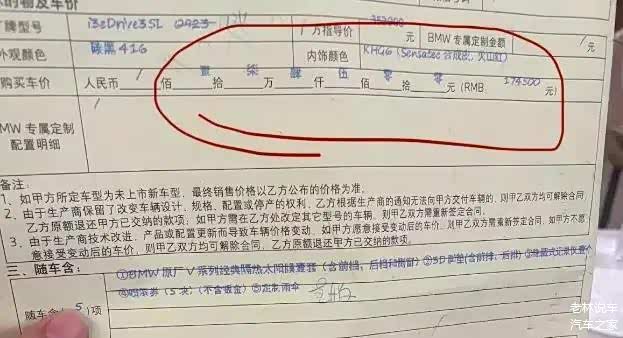 的物及车价
厂牌型号 i3eDrive35L 2023 厂方指导价 353900 元 BMW 专属定制金额 / 元
外观颜色 碳黑416 内饰颜色 KHG6 (Sensatec 合成皮, 火山红)
购买车价 人民币 / 佰 壹 拾 柒 万 肆 仟 伍 佰 零 拾 零 元 (RMB: 174500 元)
BMW 专属定制
配置明细
/
备注:
1、如甲方所定车型为未上市新车型,最终销售价格以乙方公布的价格为准。
2、由于生产商保留了改变车辆设计、规格、配置或停产的权利,乙方根据生产商的通知无法向甲方交付车辆的,则甲乙双方均可解除合同,
乙方原额退还甲方已交纳的款项;如甲方需在乙处改定其它型号的车辆,则甲乙双方需重新签定合同。
3、由于生产商技术改进、产品或配置更新而导致车辆价格变动,如甲方愿意接受变动后的车价,则甲乙双方需重新签定合同,如甲方不愿
意接受变动后的车价,则甲乙双方均可解除合同,乙方原额退还甲方已交纳的款项。
三、随车含:
①BMW 原厂V系列经典隔热太阳膜壹套(含前档,后档和侧窗)②3D脚垫(含前排,后排)③隐藏式记录仪壹个
随车含(5)项
④喷漆券(5次)(不含钣金)⑤定制雨伞
老林说车
汽车之家